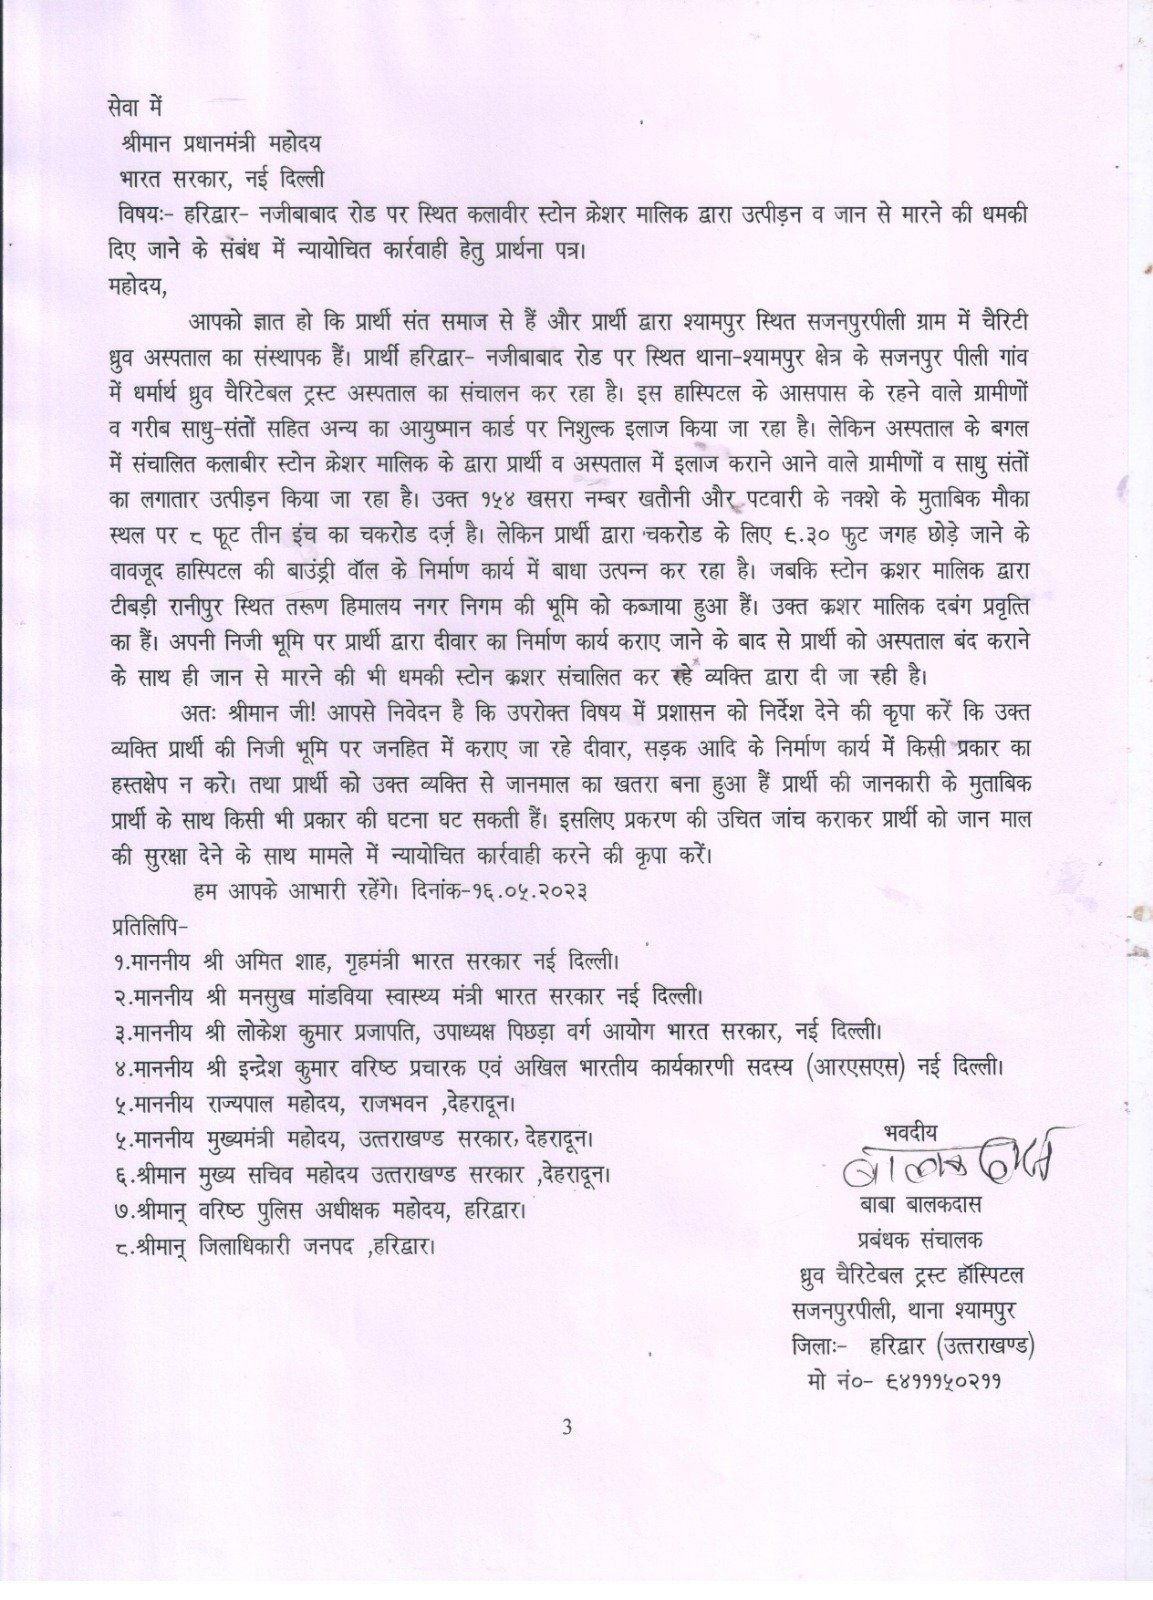 सेवा में
श्रीमान प्रधानमंत्री महोदय
भारत सरकार, नई दिल्ली
विषयः- हरिद्वार- नजीबाबाद रोड पर स्थित कलावीर स्टोन क्रेशर मालिक द्वारा उत्पीड़न व जान से मारने की धमकी
दिए जाने के संबंध में न्यायोचित कार्रवाही हेतु प्रार्थना पत्र।
महोदय,
आपको ज्ञात हो कि प्रार्थी संत समाज से हैं और प्रार्थी द्वारा श्यामपुर स्थित सजनपुरपीली ग्राम में चैरिटी
ध्रुव अस्पताल का संस्थापक हैं। प्रार्थी हरिद्वार- नजीबाबाद रोड पर स्थित थाना-श्यामपुर क्षेत्र के सजनपुर पीली गांव
में धर्मार्थ ध्रुव चैरिटेबल ट्रस्ट अस्पताल का संचालन कर रहा है। इस हास्पिटल के आसपास के रहने वाले ग्रामीणों
व गरीब साधु-संतों सहित अन्य का आयुष्मान कार्ड पर निशुल्क इलाज किया जा रहा है। लेकिन अस्पताल के बगल
में संचालित कलाबीर स्टोन क्रेशर मालिक के द्वारा प्रार्थी व अस्पताल में इलाज कराने आने वाले ग्रामीणों व साधु संतों
का लगातार उत्पीड़न किया जा रहा है। उक्त १५४ खसरा नम्बर खतौनी और पटवारी के नक्शे के मुताबिक मौका
स्थल पर ८ फूट तीन इंच का चकरोड दर्ज़ है। लेकिन प्रार्थी द्वारा चकरोड के लिए ६.३० फुट जगह छोड़े जाने के
वावजूद हास्पिटल की बाउंड्री वॉल के निर्माण कार्य में बाधा उत्पन्न कर रहा है। जबकि स्टोन क्रशर मालिक द्वारा
टीबड़ी रानीपुर स्थित तरूण हिमालय नगर निगम की भूमि को कब्जाया हुआ हैं। उक्त क्रशर मालिक दबंग प्रवृत्ति
का हैं। अपनी निजी भूमि पर प्रार्थी द्वारा दीवार का निर्माण कार्य कराए जाने के बाद से प्रार्थी को अस्पताल बंद कराने
के साथ ही जान से मारने की भी धमकी स्टोन क्रशर संचालित कर रहे व्यक्ति द्वारा दी जा रही है।
अतः श्रीमान जी! आपसे निवेदन है कि उपरोक्त विषय में प्रशासन को निर्देश देने की कृपा करें कि उक्त
व्यक्ति प्रार्थी की निजी भूमि पर जनहित में कराए जा रहे दीवार, सड़क आदि के निर्माण कार्य में किसी प्रकार का
हस्तक्षेप न करे। तथा प्रार्थी को उक्त व्यक्ति से जानमाल का खतरा बना हुआ हैं प्रार्थी की जानकारी के मुताबिक
प्रार्थी के साथ किसी भी प्रकार की घटना घट सकती हैं। इसलिए प्रकरण की उचित जांच कराकर प्रार्थी को जान माल
की सुरक्षा देने के साथ मामले में न्यायोचित कार्रवाही करने की कृपा करें।
हम आपके आभारी रहेंगे। दिनांक-१६.०५.२०२३
प्रतिलिपि-
१.माननीय श्री अमित शाह, गृहमंत्री भारत सरकार नई दिल्ली।
२.माननीय श्री मनसुख मांडविया स्वास्थ्य मंत्री भारत सरकार नई दिल्ली।
३.माननीय श्री लोकेश कुमार प्रजापति, उपाध्यक्ष पिछड़ा वर्ग आयोग भारत सरकार, नई दिल्ली।
४.माननीय श्री इन्द्रेश कुमार वरिष्ठ प्रचारक एवं अखिल भारतीय कार्यकारणी सदस्य (आरएसएस) नई दिल्ली।
५.माननीय राज्यपाल महोदय, राजभवन ,देहरादून।
५.माननीय मुख्यमंत्री महोदय, उत्तराखण्ड सरकार, देहरादून।
६.श्रीमान मुख्य सचिव महोदय उत्तराखण्ड सरकार ,देहरादून।
७.श्रीमान् वरिष्ठ पुलिस अधीक्षक महोदय, हरिद्वार।
८.श्रीमान् जिलाधिकारी जनपद ,हरिद्वार।
भवदीय
बाबा बालकदास
प्रबंधक संचालक
ध्रुव चैरिटेबल ट्रस्ट हॉस्पिटल
सजनपुरपीली, थाना श्यामपुर
जिलाः- हरिद्वार (उत्तराखण्ड)
मो नं०- ६४१११५०२११
3